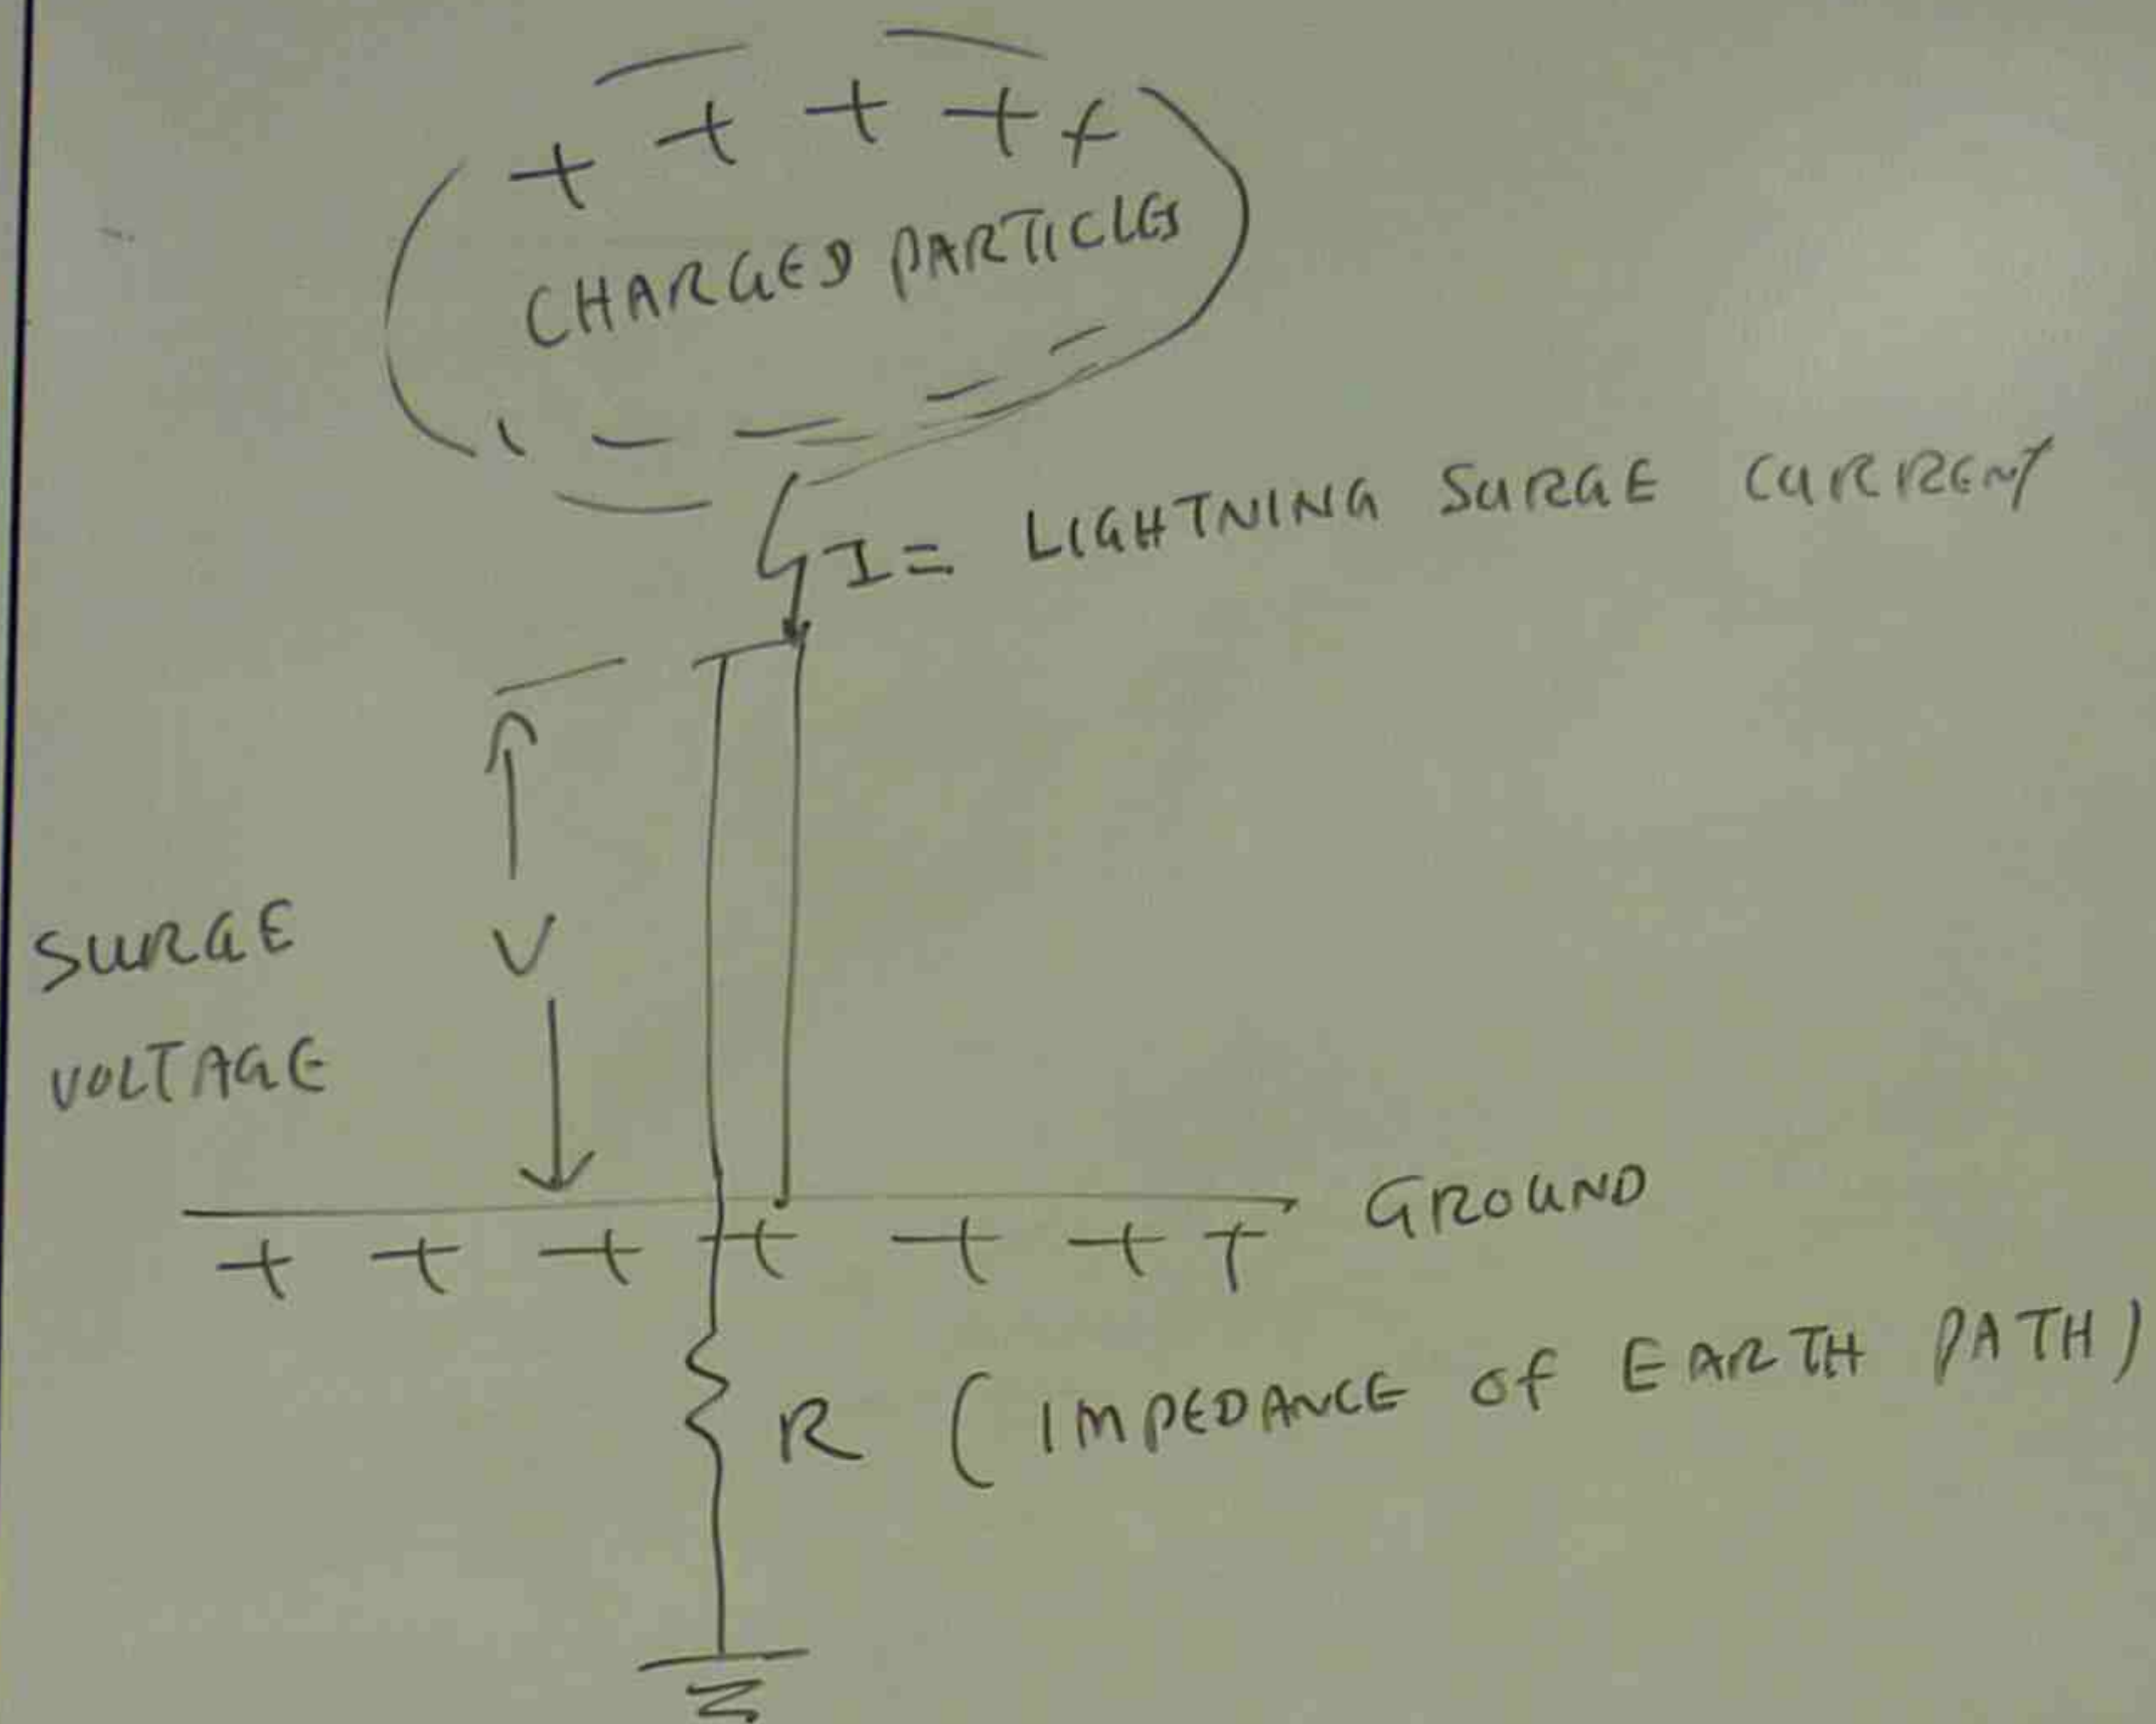 + + + + +
CHARGED PARTICLES
- - - - -
I = LIGHTNING SURGE CURRENT
SURGE V
VOLTAGE
GROUND
+ + + + + + +
R (IMPEDANCE of EARTH PATH)